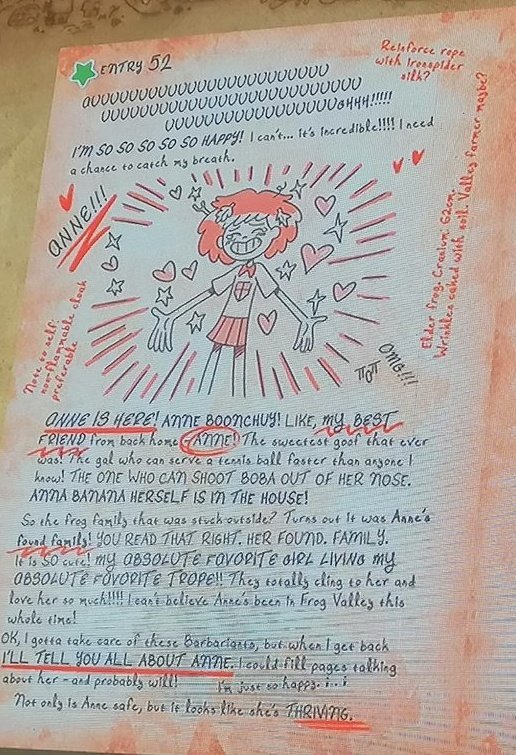 ENTRY 52
Reinforce rope
with ironspider
silk?
AUUUUUUUUUUUUUUUUUUUUUUUU
UUUUUUUUUUUUUUUUUUUUUUUUUU
UUUUUUUUUUUUUUUUUAHHH!!!!!
I'M SO SO SO SO SO HAPPY! I can't... it's incredible!!!! I need
a chance to catch my breath.
ANNE!!!
Elder frog. Cranium: 62cm.
Wrinkles caked with soil. Valley farmer maybe?
Note to self:
non-flammable cloak
preferable
OMG!!!
ANNE IS HERE! ANNE BOONCHUY! LIKE, MY BEST
FRIEND from back home ANNE! The sweetest goof that ever
was! The gal who can serve a tennis ball faster than anyone I
know! THE ONE WHO CAN SHOOT BOBA OUT OF HER NOSE.
ANNA BANANA HERSELF IS IN THE HOUSE!
So the frog family that was stuck outside? Turns out it was Anne's
found family! YOU READ THAT RIGHT. HER FOUND. FAMILY.
It is SO cute! MY ABSOLUTE FAVORITE GIRL LIVING MY
ABSOLUTE FAVORITE TROPE!! They totally cling to her and
love her so much!!!! I can't believe Anne's been in Frog Valley this
whole time!
OK, I gotta take care of these Barbariants, but when I get back
I'LL TELL YOU ALL ABOUT ANNE. I could fill pages talking
about her - and probably will! I'm just so happy. i..i
Not only is Anne safe, but it looks like she's THRIVING.